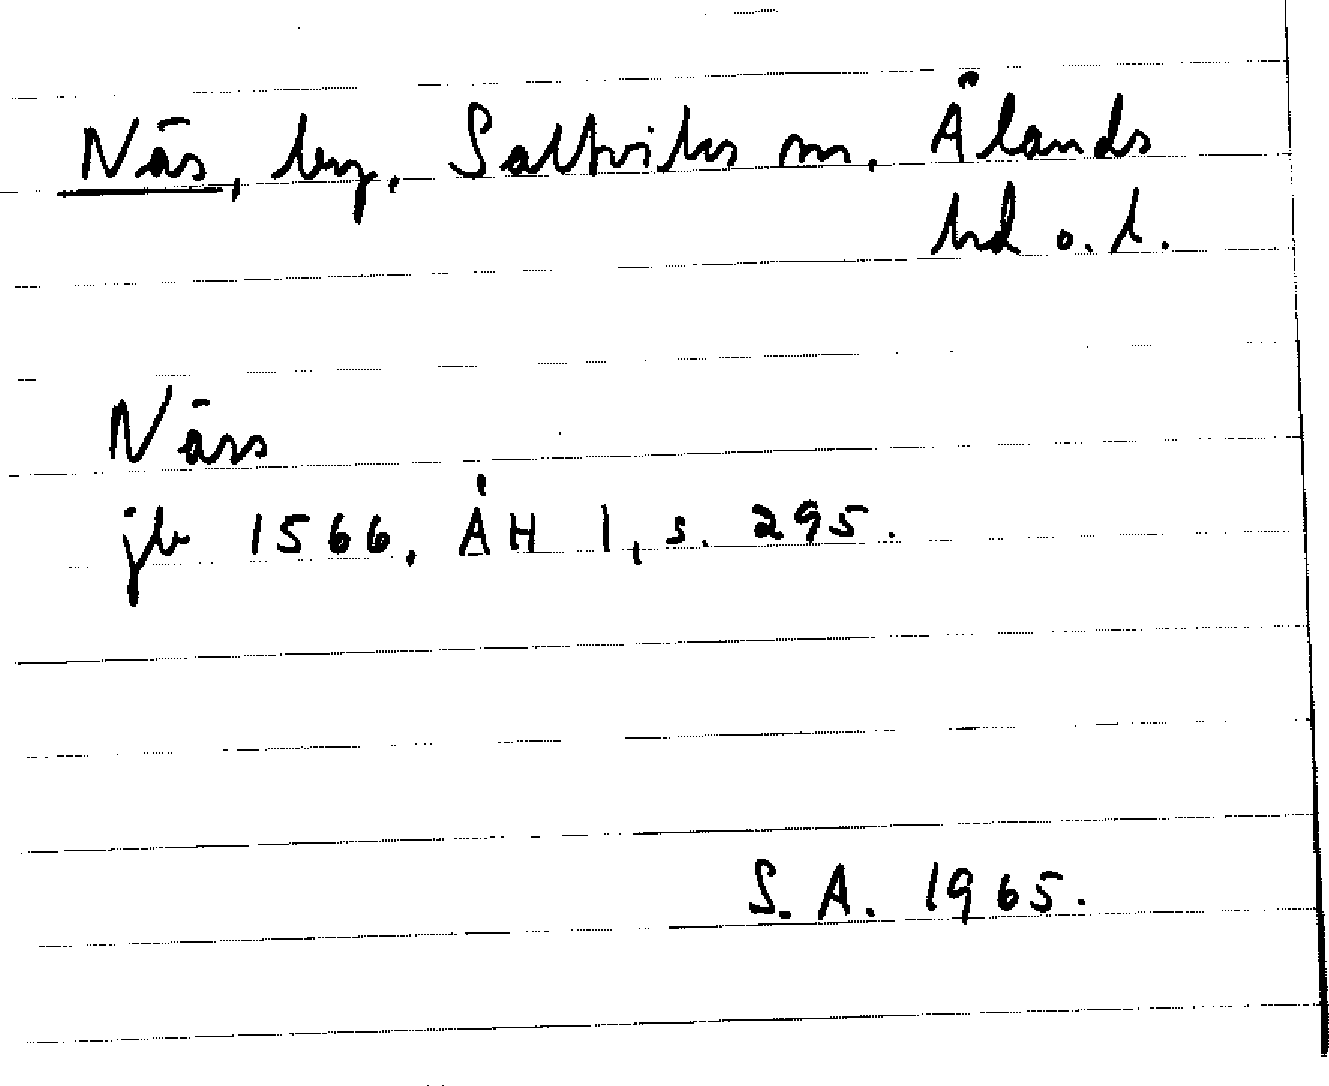 Näs, by, Saltviks sn, Ålands
hd o. l.
Näss
jb 1566, ÅH 1, s. 295.
S. A. 1965.